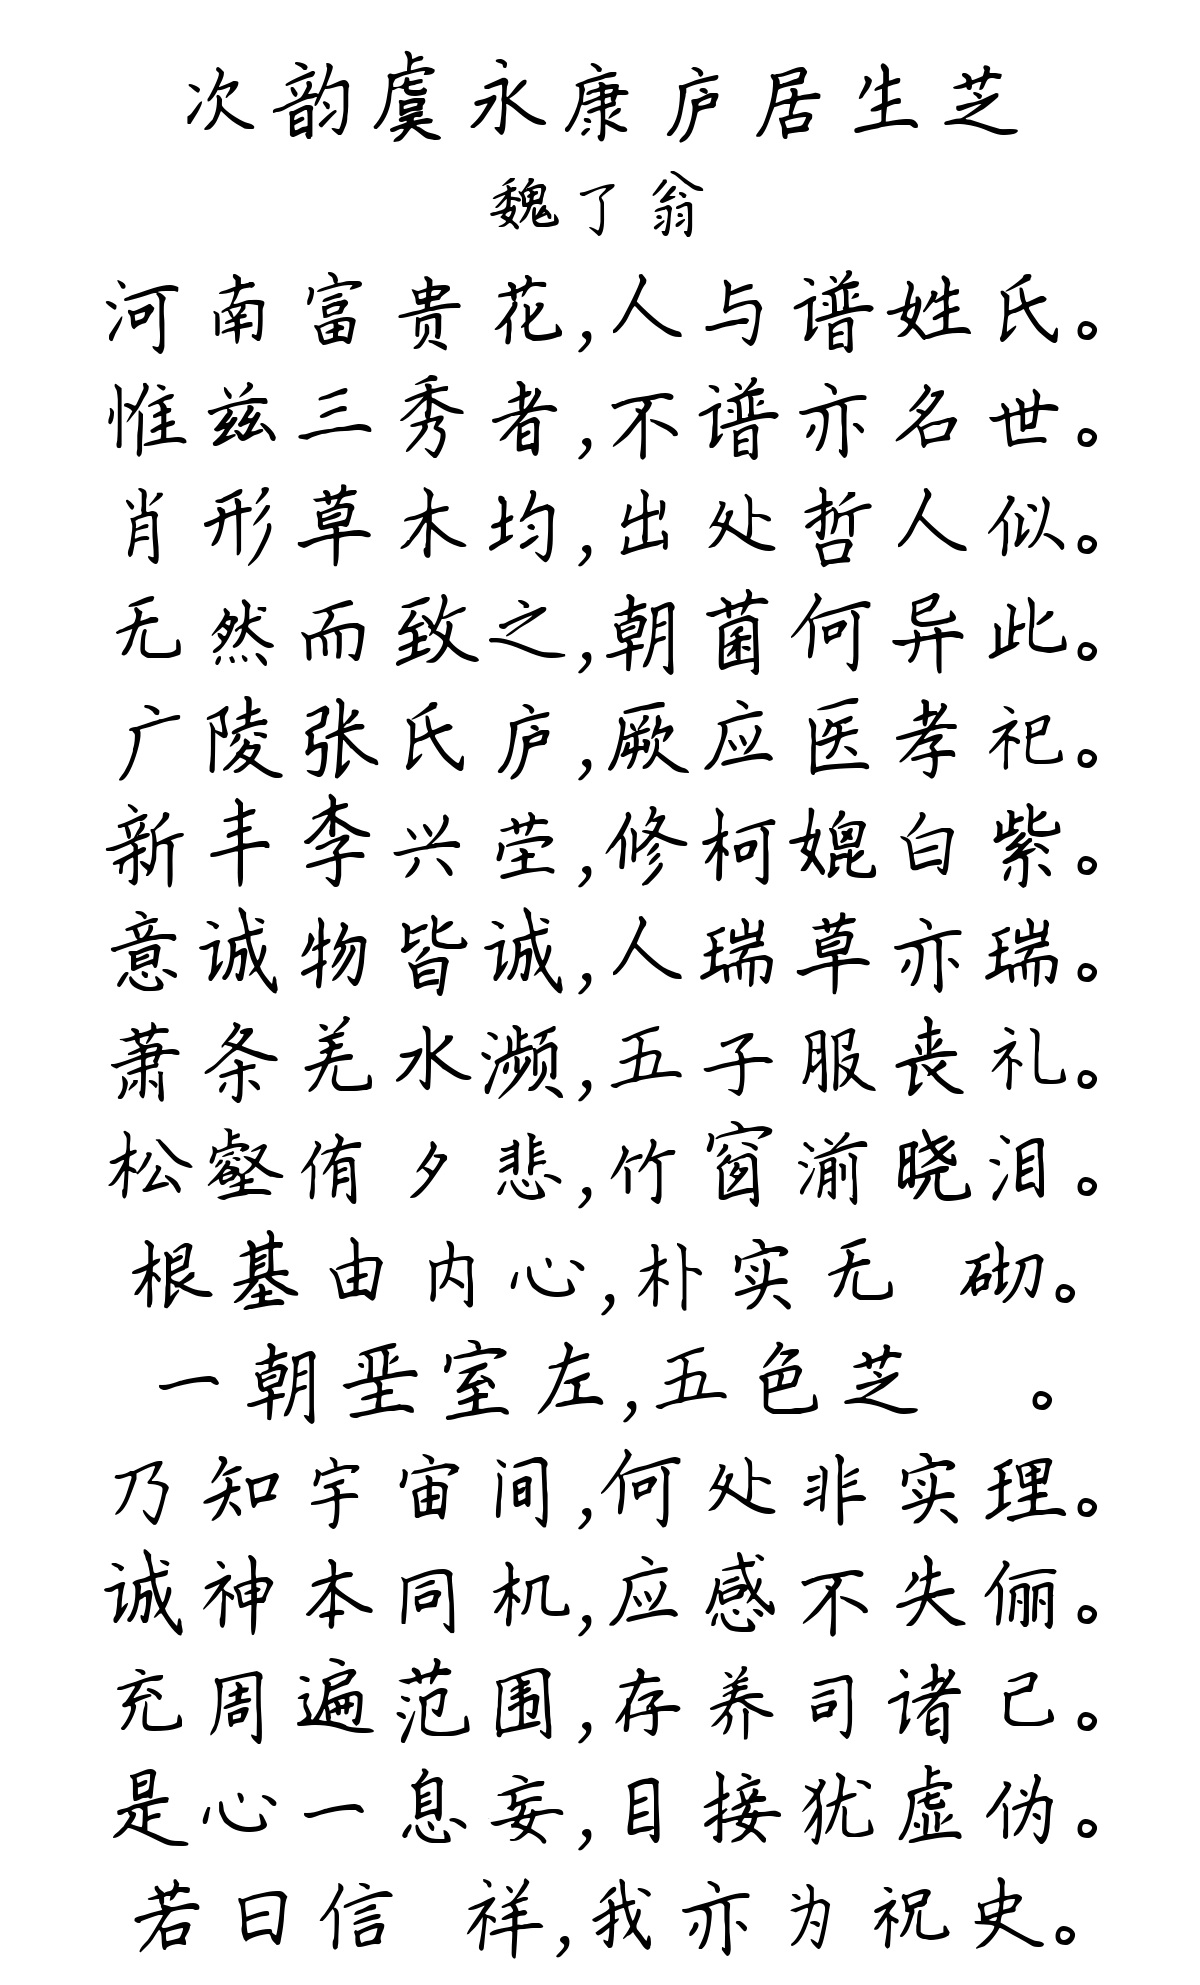 次韵虞永康庐居生芝
魏了翁
河南富贵花,人与谱姓氏。
惟兹三秀者,不谱亦名世。
肖形草木均,出处哲人似。
无然而致之,朝菌何异此。
广陵张氏庐,厥应医孝祀。
新丰李兴茔,修柯媲白紫。
意诚物皆诚,人瑞草亦瑞。
萧条羌水濒,五子服丧礼。
松壑侑夕悲,竹窗湔晓泪。
根基由内心,朴实无 砌。
一朝垩室左,五色芝 。
乃知宇宙间,何处非实理。
诚神本同机,应感不失俪。
充周遍范围,存养司诸己。
是心一息妄,目接犹虚伪。
若曰信 祥,我亦为祝史。